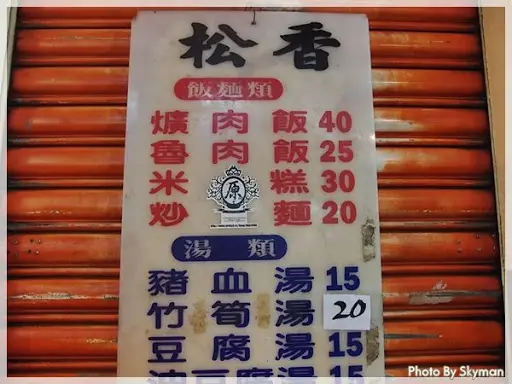 松香
飯麵類
爌肉飯 40
魯肉飯 25
米糕 30
原
炒麵 20
湯類
豬血湯 15
竹筍湯 20
豆腐湯 15
油豆腐湯 15
Photo By Skyman